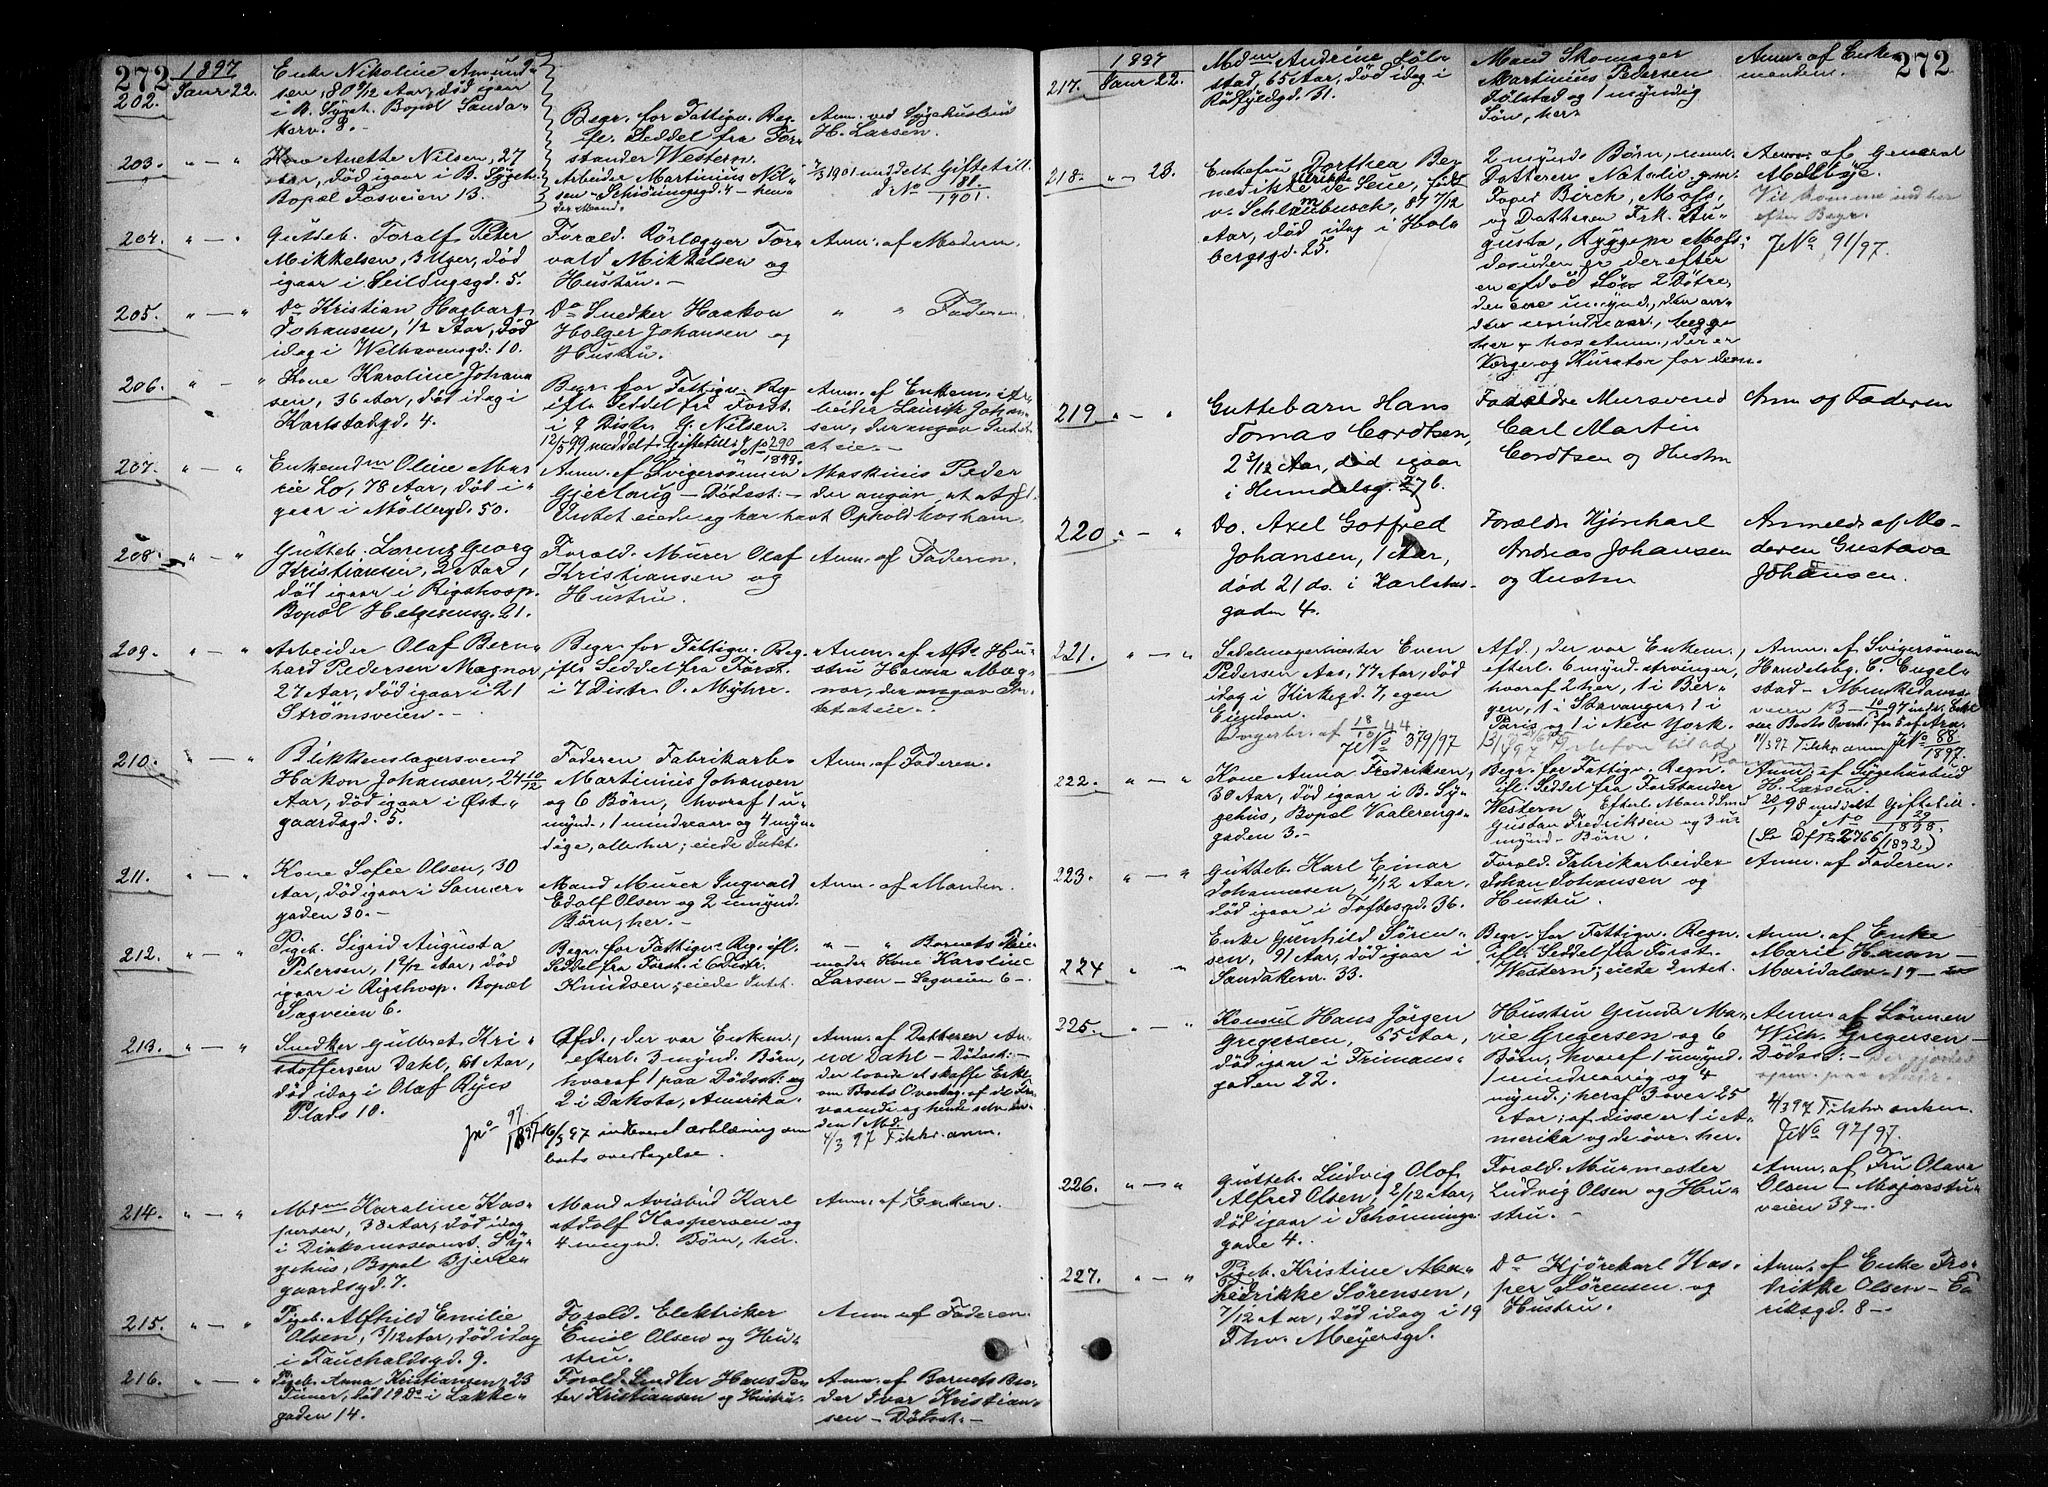 272
1897
202.
Januar 22.
Enke Nikoline Amund-
sen, 80 9/12 Aar, død igaar
i B. Sygeh. Bopæl Sanda-
kerv. 8.-
Begr. for Fattigv. Reg-
fl. Seddel fra For-
stander Western.
Anm. ved Sygehusbud
H. Larsen.
203.
Kone Anette Nilsen, 27
Aar, død igaar i B. Sygeh.
Bopæl Fosveien 13.
Arbeider Martinius Nil-
sen - Schøningsgd. 4 - hen-
des Mand.
1901 meddelt Giftetill.
d No 181/1901.
204.
Gutteb. Toralf Peter
Mikkelsen, 3 Uger, død
igaar i Seildugsgd. 5.
Foræld. Rørlægger Tor-
vald Mikkelsen og
Hustru.-
Anm. af Modern.
205.
Do Kristian Hagbart
Johansen, 1/2 Aar, død
idag i Welhavensgd. 10.
Do Snedker Haakon
Holger Johansen og
Hustru.
" " Faderen.
206.
Kone Karoline Johan-
sen, 36 Aar, død idag i
Karlstadgd. 4.
Begr. for Fattigv. Reg-
ifl. Seddel fra Forst.
i 9 Distr. G. Nilsen.
12/5 99 meddelt Giftetill. J No 290/1899.
Anm. af Enkem. Ar-
beider Laurits Johan-
sen, der angav Intet
at eie.-
207.
Enkemdm Oline Ma-
rie Lo, 78 Aar, død i-
gaar i Møllergd. 50.
Anm. af Svigersønnen Maskinis Peder
Gjertaug - Dødsst:- der angav, at afd.
Intet eiede og har havt Ophold hos ham.
208.
Gutteb. Lorentz Georg
Kristiansen, 2 Aar,
død igaar i Rigshosp.
Bopæl Helgesensg. 21.
Foræld. Murer Olaf
Kristiansen og
Hustru.
Anm. af Faderen.
209.
Arbeider Olaf Bern-
hard Pedersen Magnor,
27 Aar, død igaar i 21
Strømsveien.-
Begr. for Fattigv. Reg.
ifl. Seddel fra Forst.
i 7 Distr. O. Myhre.
Anm. af Afd. Hu-
stru Hanna Mag-
nor, der angav In-
tet at eie.-
210.
Blikkenslagersvend
Hakon Johansen, 24 10/12
Aar, død igaar i Øst-
gaardsgd. 5.
Faderen Fabrikarb.
Martinius Johansen
og 6 Børn, hvoraf 1 u-
mynd., 1 mindreaar. og 4 myn-
dige, alle her; eiede Intet.
Anm. af Faderen.
211.
Kone Sofie Olsen, 30
Aar, død igaar i Sanner-
gaden 30.-
Mand Murer Ingvald
Edolf Olsen og 2 umynd.
Børn, her.-
Anm. af Manden.
212.
Pigeb. Sigrid Augusta
Petersen, 1 9/12 Aar, død
igaar i Rigshosp. Bopæl
Sagveien 6.
Begr. for Fattigv. Reg. ifl.
Seddel fra Forst. i 6 Distr.
Knudsen; eiede Intet.
" - " Barnets Pleie-
moder Kone Karoline
Larsen - Sagveien 6-.
213.
Snedker Gulbret Kri-
stoffersen Dahl, 61 Aar,
død idag i Olaf Ryes
Plads 10.
Afd., der var Enkem.,
efterl. 3 mynd. Børn,
hvoraf 1 paa Dødsst: og
2 i Dakota, Amerika.
Jno 97/1897 16/3 97 indleveret erklæring om
boets overtagelse.
Anm. af Datteren An-
na Dahl - Dødsst:-
der lovede at skaffe Erkl.
om Boets Overtag. af de Fra-
værende og hende selv in-
den 1 Md.
4/3 97 Tilskr. anm.
214.
Mdm Karoline Kas-
persen, 38 Aar, død idag
i Diakonisseanst. Sy-
gehus, Bopæl Bjerre-
gaardsgd. 7.
Mand Avisbud Karl
Adolf Kaspersen og
4 umynd. Børn, her.
Anm. af Enkem.
215.
Pigeb. Alfhild Emilie
Olsen, 3/12 Aar, død idag
i Fauchaldsgd. 9.
Foræld. Elektriker
Emil Olsen og Hu-
stru.
Anm. af Faderen.
216.
Pigeb. Anna Kristiansen, 23
Timer, død 19 Ds i Lakke-
gaden 14.
Foræld. Snedker Hans Pe-
ter Kristiansen og Hustru.
Anm. af Barnets Bro-
der Ivar Kristian-
sen - Dødsst:-
272
1897
217.
Januar 22.
Mdm Andrine Jøl-
stad, 65 Aar, død idag i
Rødfyldgd. 31.
Mand Skomager
Martinius Pedersen
Jølstad og 1 myndig
Søn, her.
Anm. af Enke-
manden.
218.
" - 23.
Enkefru Dorthea Be-
nedikte Ulrikke de Seue, født
v. Schlambusch, 87 7/12
Aar, død idag i Hol-
bergsgd. 25.
2 mynd. Børn, neml.
Datteren Natalie, gm.
Foged Birch, Moss,
og Datteren Frk. Au-
gusta, Rygge pr Moss;
desuden er der efter
en afdød Søn 2 Døtre,
den ene umynd., den an-
den mindreaar., begge
her, hos Anm., der er
Værge og Kurator for dem.
Anm. af General
Møllbye.
Vil komme ind her
efter Begr.
J No 91/97.
219
Guttebarn Hans
Tomas Cordtsen,
2 3/12 Aar, død igaar
i Heimdalsg. 26.
Forældre Mursvend
Carl Martin
Cordtsen og Hustru
Anm af Faderen
220
Do. Axel Gotfred
Johansen, 1 Aar,
død 21 ds. i Karlstas-
gaden 4.
Forældre Kjørekarl
Andreas Johansen
og Hustru
Anmeldt af Mo-
deren Gustava
Johansen.
221.
Sadelmagermester Even
Pedersen Aas, 77 Aar, død
idag i Kirkegd. 7, egen
Eiendom.
Borgerbr. af 18/10 44.
J No 379/97
Afd., der var Enkem.,
efterl. 6 mynd. Arvinger,
hvoraf 2 her, 1 i Ber-
gen, 1 i Stavanger, 1 i
Paris og 1 i New York.
Anm. af Svigersønnen
Handelsbg. C. Engel-
stad - Munkedams-
veien 13 - 10/ 97 indl. Erkl.
om Boets Overt. fra 5 af Arv.
11/3 97 Tilskr. anm. J No 88/1897.
222.
Kone Anna Fredriksen,
30 Aar, død igaar i B. Sy-
gehus, Bopæl Vaalerengs-
gaden 3.-
Begr. for Fattigv. Regn.
ifl. Seddel fra Forstander
Western. Efterl. Mand Smed
Gustav Fredriksen og 3 u-
mynd. Børn.
Anm. af Sygehusbud
H. Larsen.
20/1 98 meddelt Giftetill.
J No 29/1898.
(Se Df No 2766/1892.)
223.
Gutteb. Karl Einar
Johannesen, 4/12 Aar.
død igaar i Toftesgd. 36.
Foræld. Fabrikarbeider
Johan Johansen og
Hustru.
Anm. af Faderen.
224
Enke Gunhild Søren-
sen, 91 Aar, død igaar i
Sandakerv. 33.
Begr. for Fattigv. Regn.
ifl. Seddel fra Forst.
Western; eiede Intet.
Anm. af Enke
Marie Hansen -
Maridalsv. 17 -
225.
Konsul Hans Jørgen
Gregersen, 65 Aar,
død igaar i Frimans-
gaden 22.
Hustru Gunda Ma-
rie Gregersen og 6
Børn, hvoraf 1 umynd.
1 mindreaarig og 4
mynd.; heraf 3 over 25
Aar; af disse er 1 i A-
merika og de øvr. her.
Anm. af Sønnen
Wilh. Gregersen -
Dødsst:-
4/3 97 Tilskr. enken.
J No 92/97.
226.
Gutteb. Ludvig Olaf
Alfred Olsen, 2/12 Aar,
død igaar i Schønnings-
gade 4.
Foræld. Murmester
Ludvig Olsen og Hu-
stru.-
Anm. af Fru Olava
Olsen - Majorstu-
veien 39-.
227.
Pigeb. Kristine Ma-
Fredrikke Sørensen,
7/12 Aar, død idag i 19
Thv. Meyersgd.
Do Kjørekarl Kas-
per Sørensen og
Hustru.
Anm. af Enke Fre-
drikke Olsen - Ea-
riksgd. 8-.